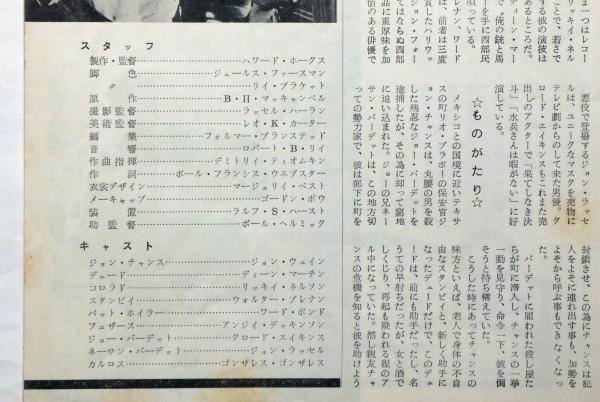 スタッフ
製作・監督……ハワード・ホークス
脚色……ジュールス・ファースマン
〃……リイ・ブラケット
原作……B・H・マッキャンベル
撮影監督……ラッセル・ハーラン
美術監督……レオ・K・カーター
編集……フォルマー・ブランステッド
音響……ロバート・B・リイ
作曲指揮……デミトリイ・ティオムキン
作詞……ポール・フランシス・ウエブスター
衣裳デザイン……マージョリイ・ベスト
メーキャップ……ゴードン・ボウ
装置……ラルフ・S・ハースト
助監督……ポール・ヘルミック
キャスト
ジョン・チャンス……ジョン・ウェイン
デュード……ディーン・マーチン
コロラド……リッキイ・ネルソン
スタンピイ……ウォルター・ブレナン
パット・ホイラー……ワード・ボンド
フェザース……アンジイ・ディッキンソン
ジョー・バーデット……クロード・エイキンス
ネーサン・バーデット……ジョン・ラッセル
カルロス……ゴンザレス・ゴンザレス
一つはレコー
リッキイ・ネル
ことで、若さで
する彼の演技は
あるところだ。
ディーン・マー
で「俺の銃と馬
ーを手に西部民
唄っている。
レナン、ワード
、前者は三度
賞したハリウッ
ジョン・フォー
てはならぬ西部
品に重厚味を加
値のある俳優で
悪役で登場するジョン・ラッセ
ルは、ユニークなマスクを売物に
テレビ劇からのして来た男優。ク
ロード・エイキンスもこれまた売
出しのアクターで「果てしなき決
斗」「水兵さんは暇がない」に好
演している。
☆ものがたり☆
メキシコとの国境に近いテキサ
スの町リオ・ブラボーの保安官ジ
ョン・チャンスは、丸腰の男を殺
した残忍なジョー・バーデットを
逮捕したが、その為に却って窮地
に追い込まれた。ジョーの兄ネー
サン・バーデットは、この地方切
っての勢力家で、彼は部下に町を
封鎖させ、この為にチャンスは犯
人をよそに連れ出す事も、加勢を
よそから呼ぶ事もできなくなっ
た。
バーデットに雇われた殺し屋た
ちが町に潜入し、チャンスの一挙
一動を見守り、命令一下、彼を倒
そうと待ち構えていた。
こうした時にあってチャンスの
味方といえば、老人で身体の不自
由なスタンピイと、新しく助手に
なったデュードだけで、このデュ
ードは、前にも助手だったし、名
うての早射ちだったが、女と酒で
しくじり、再起も疑われる程のア
ル中になっていた。然し親友チャ
ンスの危機を知ると彼を助けよう